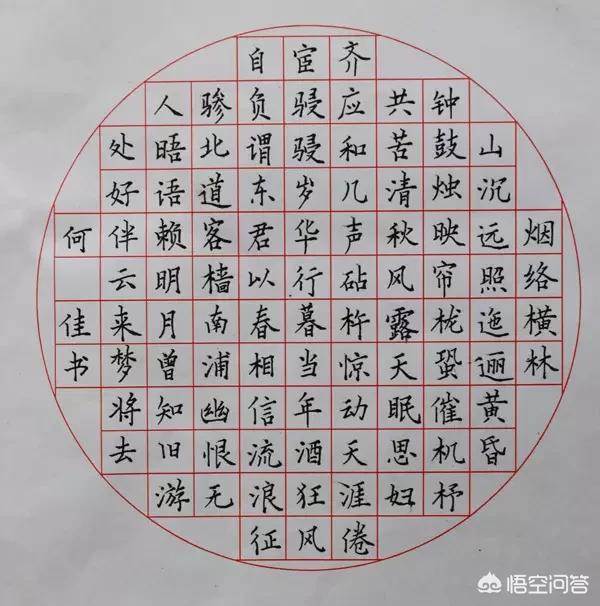 烟络横林
山沉远照迤逦黄昏
钟鼓烛映帘栊蛩催机杼
共苦清秋风露天眠思妇
齐应和几声砧杵惊动天涯倦
宦骎骎岁华行暮当年酒狂风
自负谓东君以春相信流浪征
骖北道客樯南浦幽恨无
人晤语赖明月曾知旧游
处好伴云来梦将去
何佳书
悟空问答